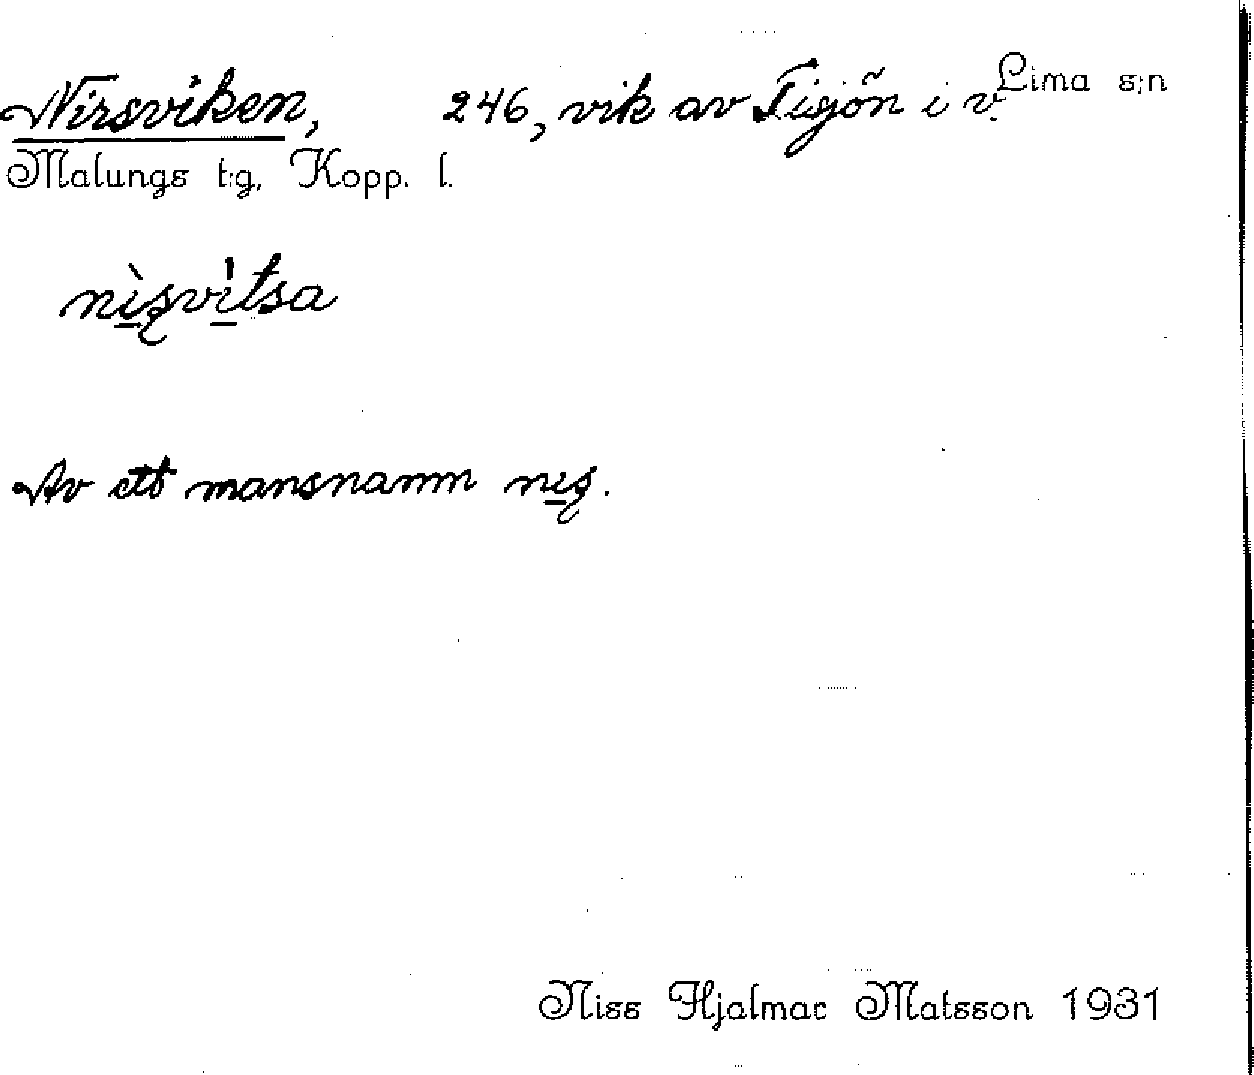 Nirsviken, 246, vik av Tisjön i v. Lima s:n
Malungs t:g, Kopp. l.
nìs̱vìtsa
Av ett mansnamn nis̱.
Niss Hjalmar Matsson 1931